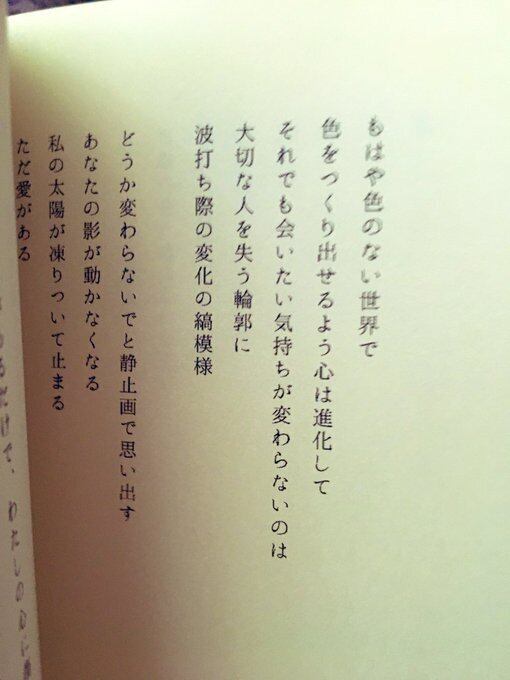 もはや色のない世界で
色をつくり出せるよう心は進化して
それでも会いたい気持ちが変わらないのは
大切な人を失う輪郭に
波打ち際の変化の縞模様
どうか変わらないでと静止画で思い出す
あなたの影が動かなくなる
私の太陽が凍りついて止まる
ただ愛がある
るだけで、わたしの心に